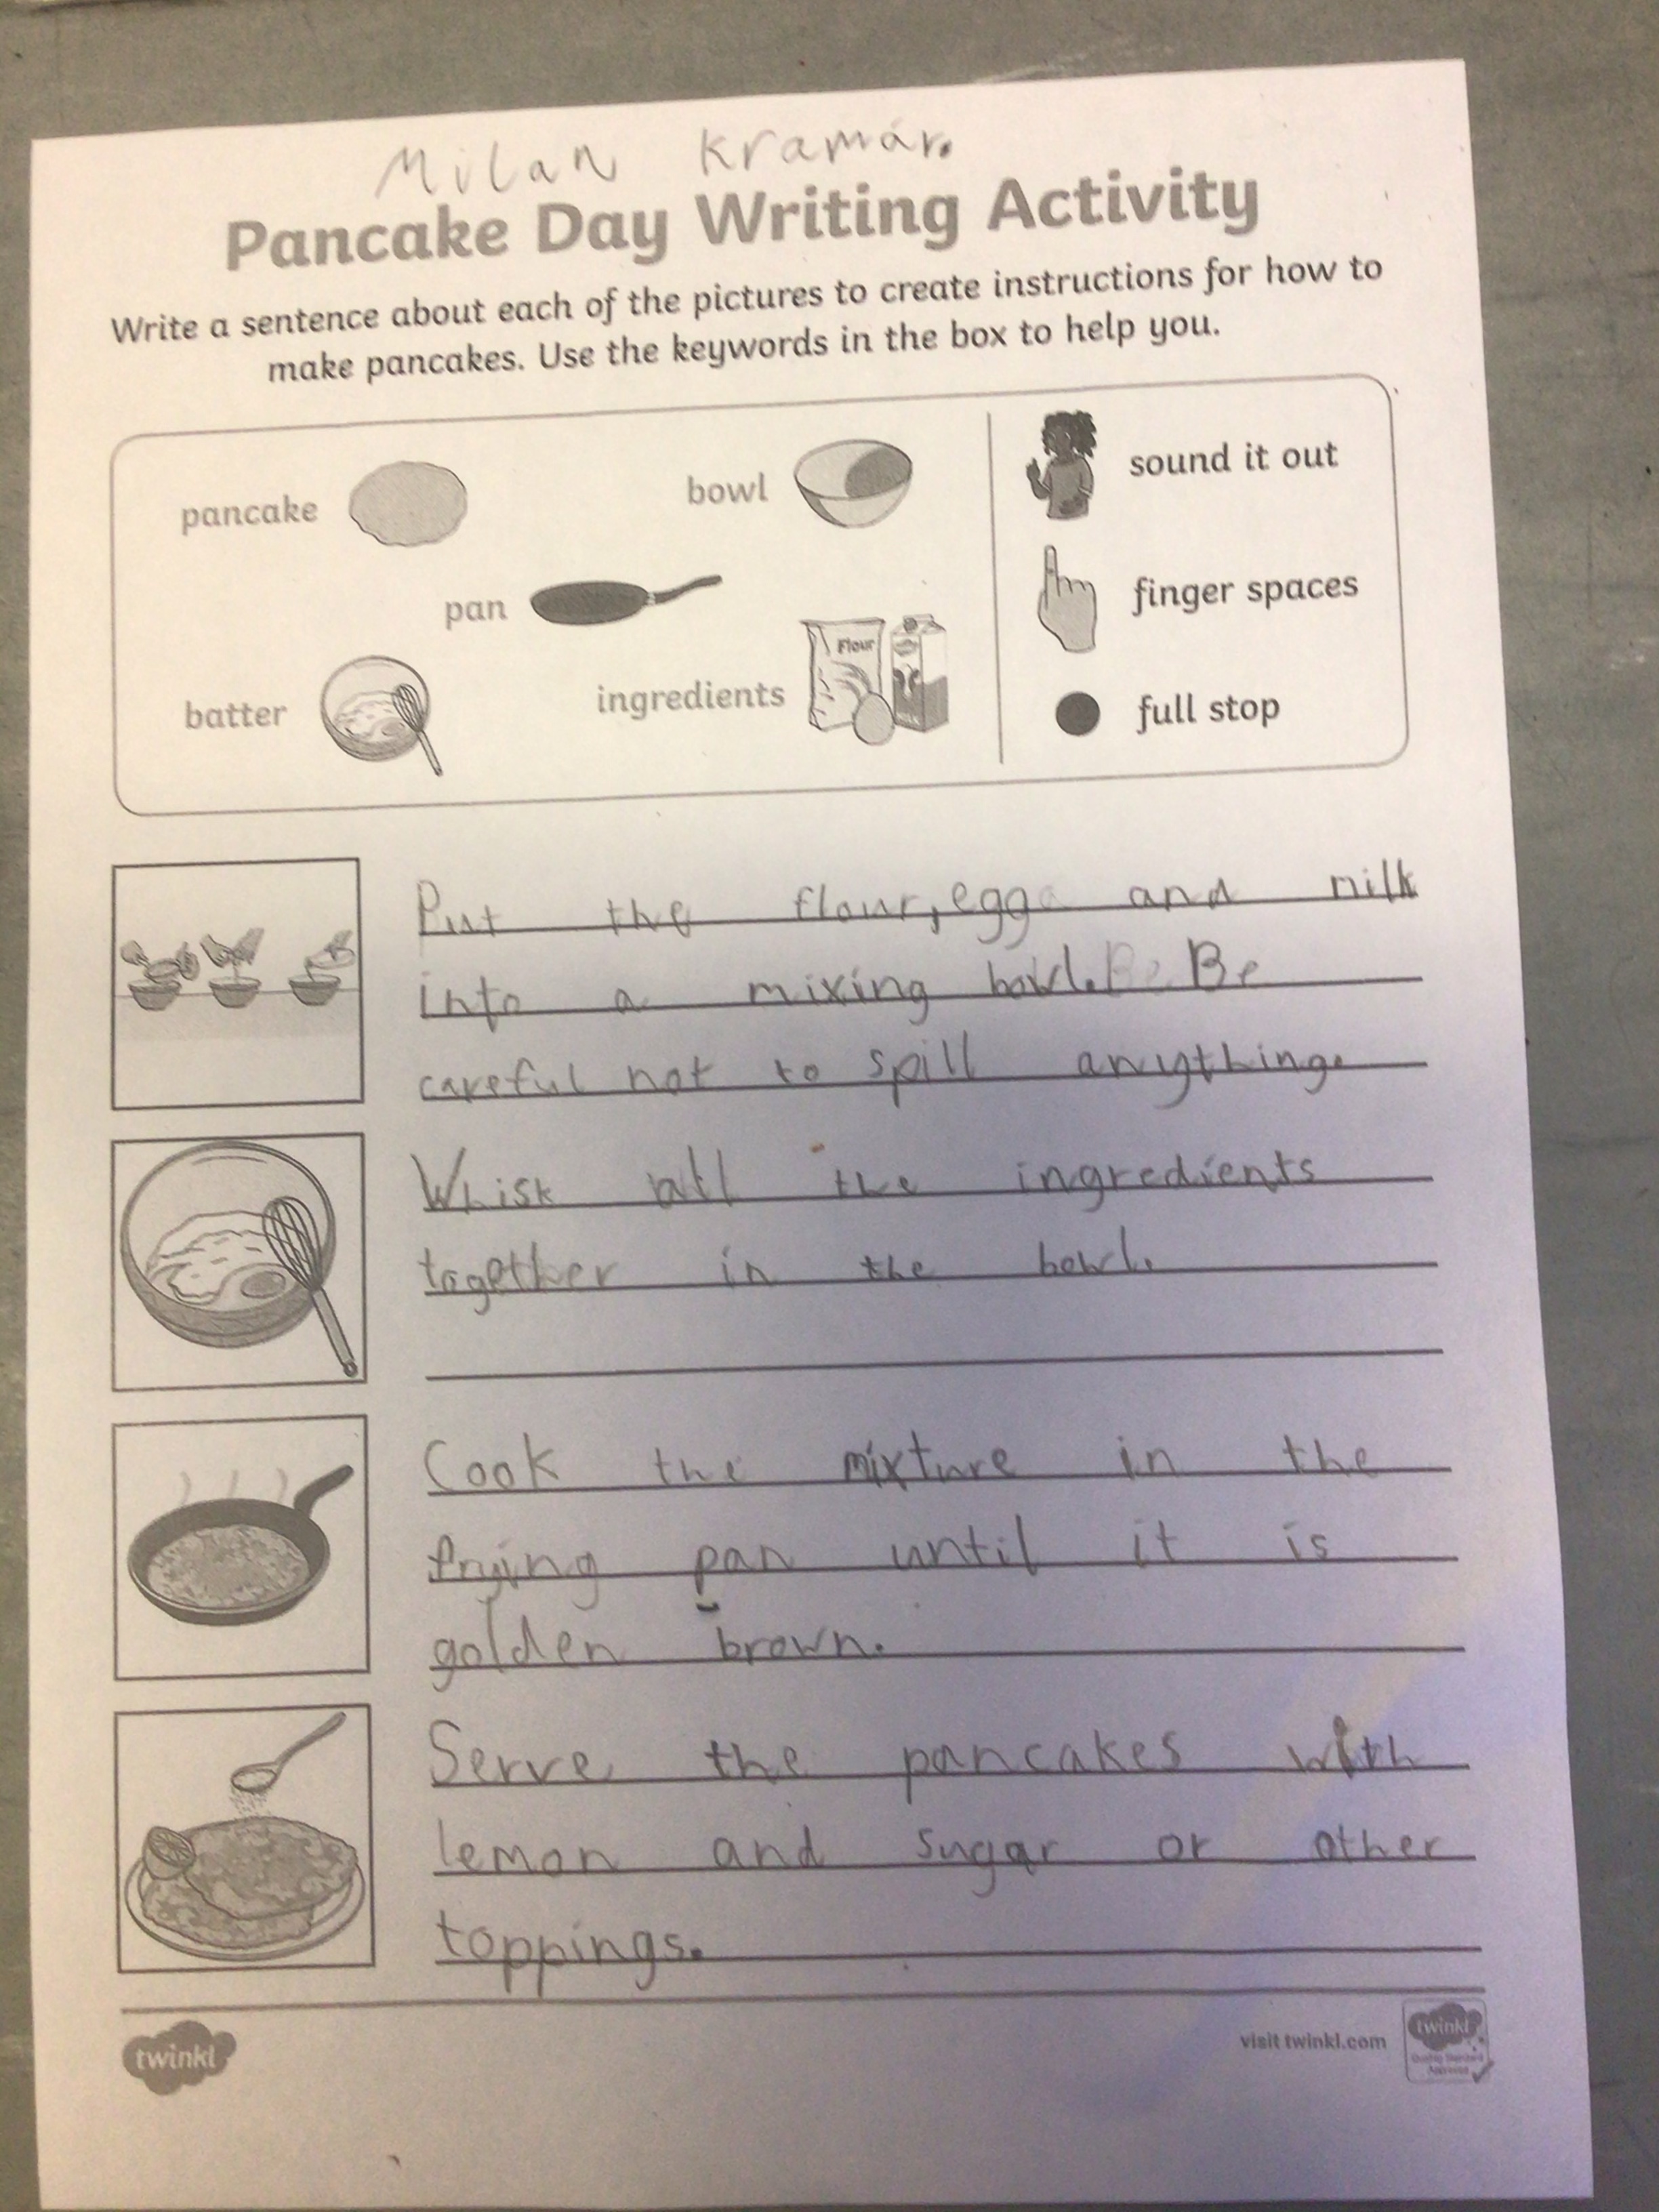 Milan Kramár.
Pancake Day Writing Activity
Write a sentence about each of the pictures to create instructions for how to
make pancakes. Use the keywords in the box to help you.
pancake
bowl
pan
batter
ingredients
Flour
sound it out
finger spaces
full stop
Put the flour, egg and milk
into a mixing bowl. Be
careful not to spill anything.
Whisk all the ingredients
together in the bowl.
Cook the mixture in the
frying pan until it is
golden brown.
Serve the pancakes with
lemon and sugar or other
toppings.
twinkl
visit twinkl.com
twinkl
Quality Standard
Approved